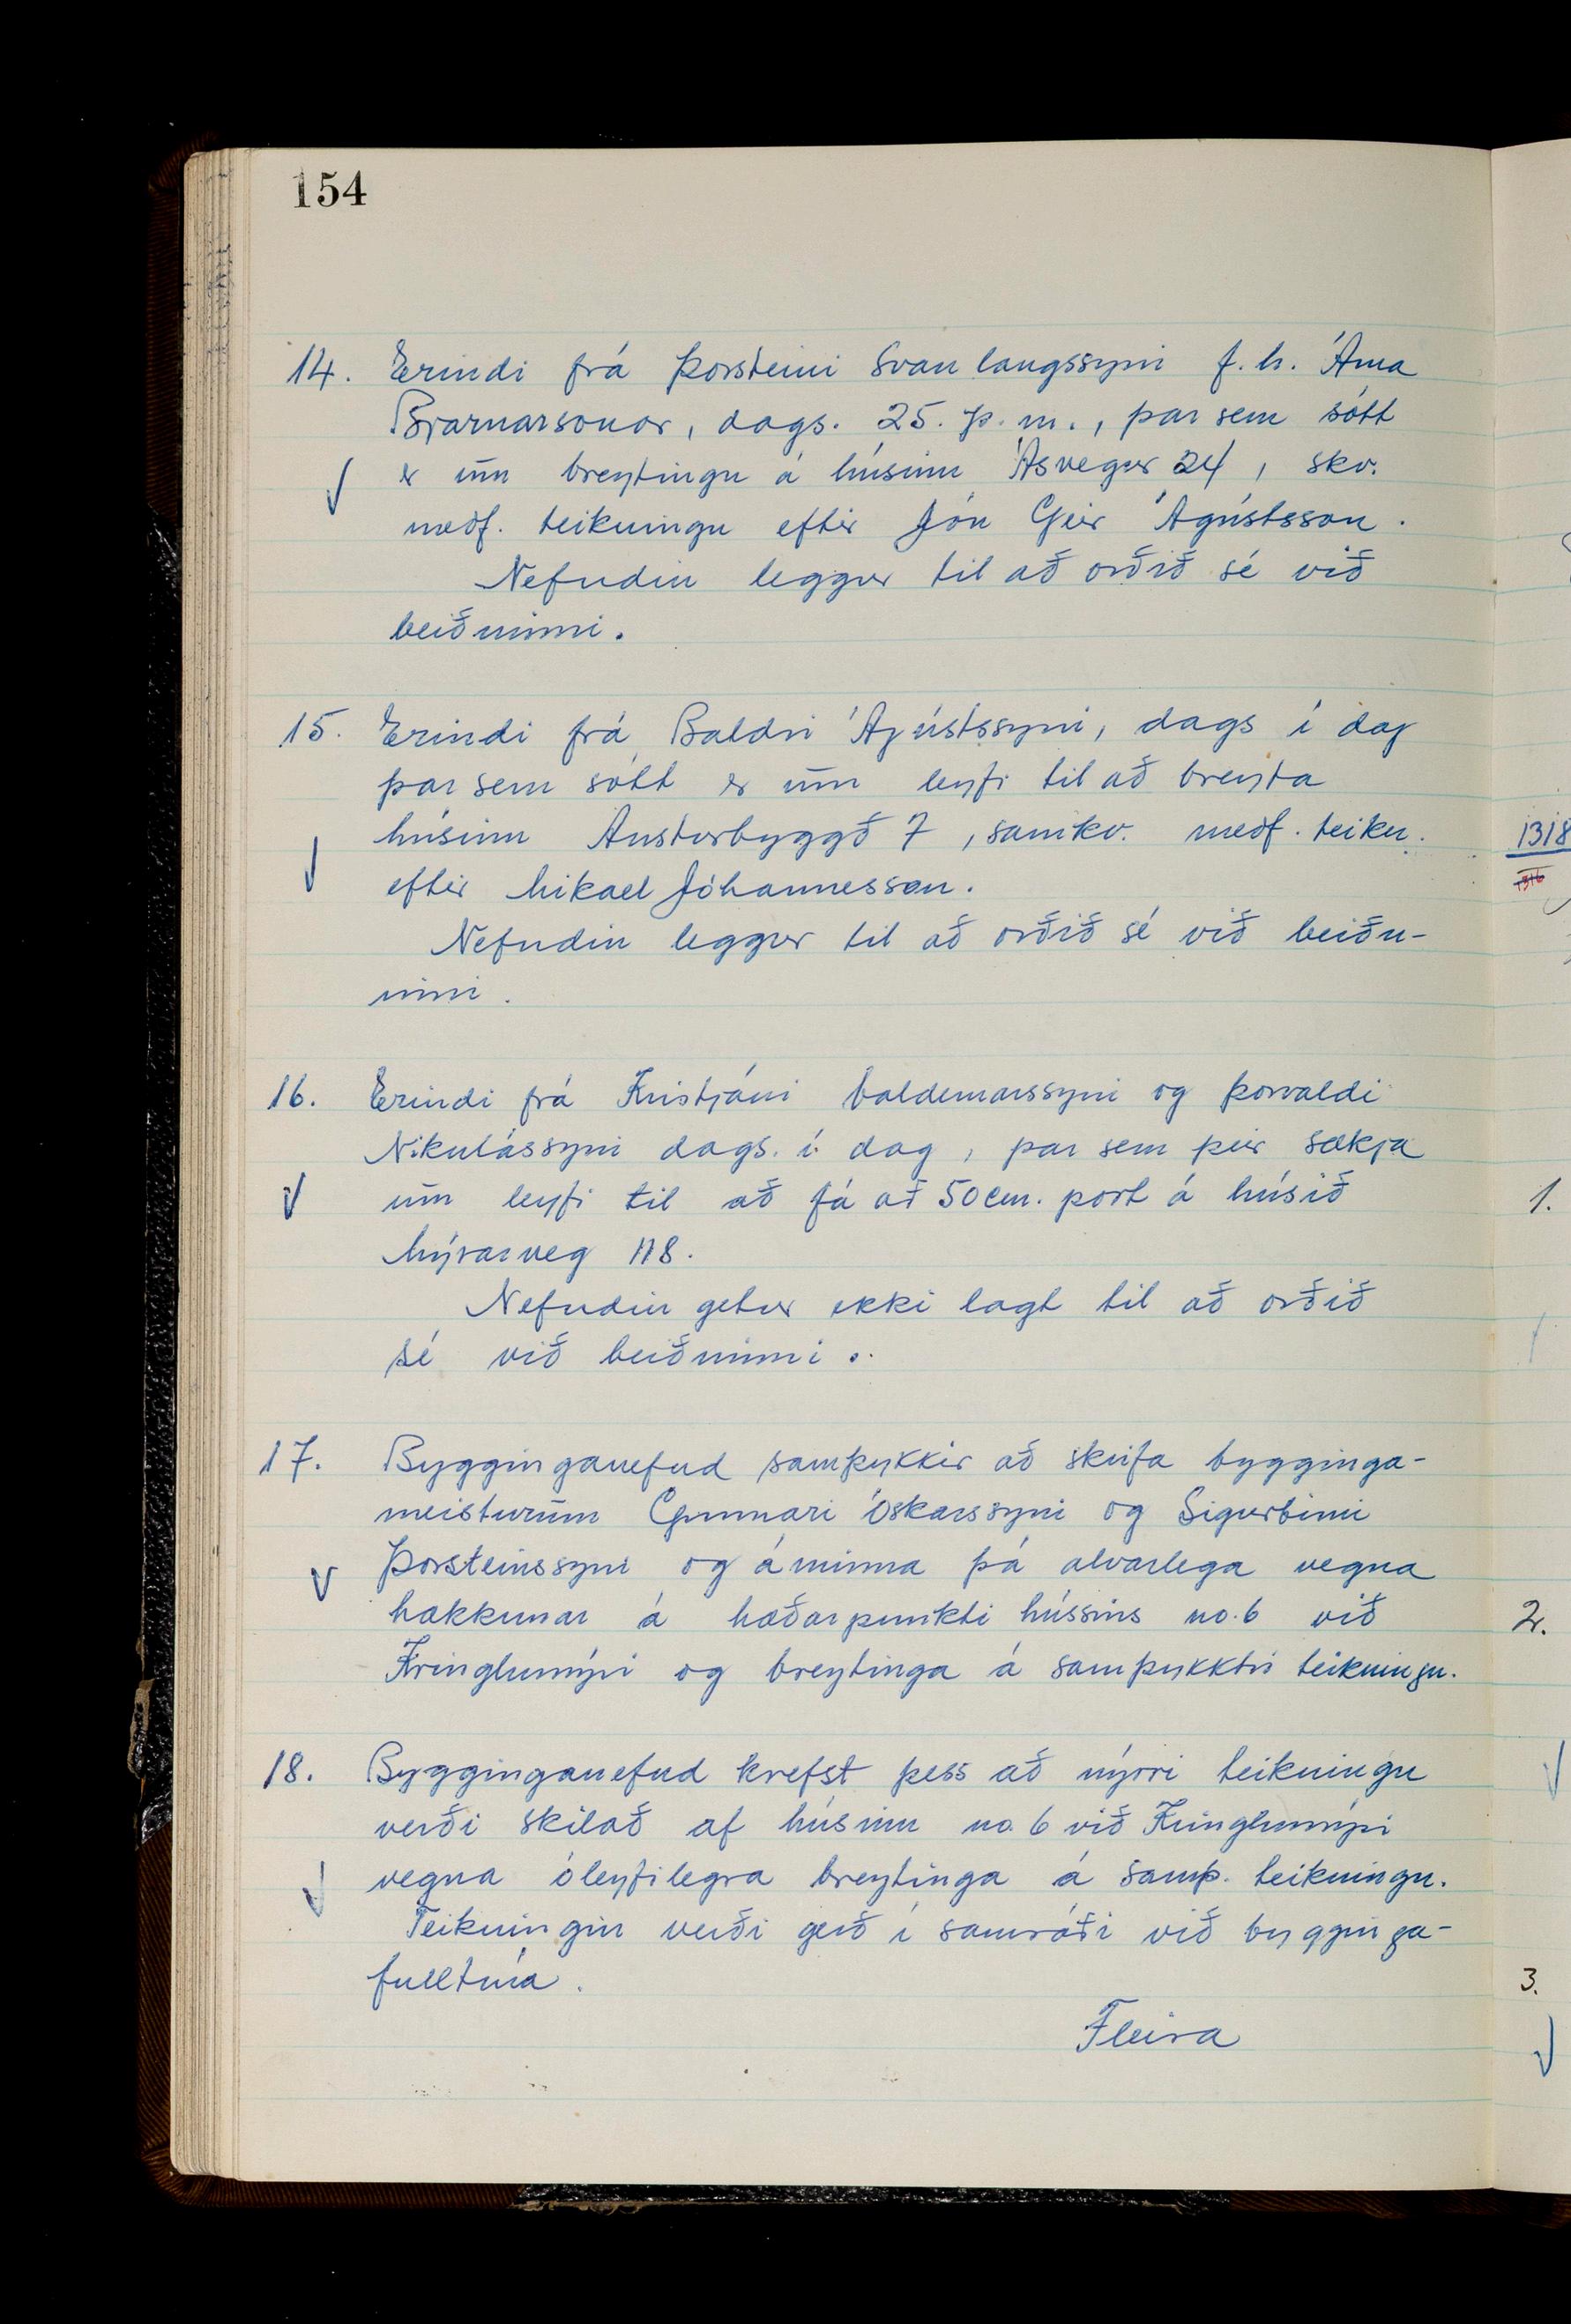 154
14. Erindi frá Þorsteini Svanlaugssyni f.h. Árna
Bjarnarsonar, dags. 25. þ.m., þar sem sótt
er um breytingu á húsinu Ásvegur 24, skv.
meðf. teikningu eftir Jón Geir Ágústsson.
Nefndin leggur til að orðið sé við
beiðninni.
15. Erindi frá Baldri Ágústssyni, dags í dag
þar sem sótt er um leyfi til að breyta
húsinu Austurbyggð 7, samkv. meðf. teikn.
eftir Mikael Jóhannesson.
Nefndin leggur til að orðið sé við beiðn-
inni.
16. Erindi frá Kristjáni Valdemarssyni og Þorvaldi
Nikulássyni dags. í dag, þar sem þeir sækja
um leyfi til að fá að 50 cm. port á húsið
Mýrarveg 118.
Nefndin getur ekki lagt til að orðið
sé við beiðninni.
17. Bygginganefnd samþykkir að skrifa bygginga-
meisturum Gunnari Óskarssyni og Sigurbirni
Þorsteinssyni og áminna þá alvarlega vegna
hækkunar á hæðarpunkti hússins no. 6 við
Kringlumýri og breytinga á samþykktri teikningu.
18. Bygginganefnd krefst þess að nýrri teikningu
verði skilað af húsinu no. 6 við Kringlumýri
vegna óleyfilegra breytinga á samþ. teikningu.
Teikningin verði gerð í samráði við bygginga-
fulltrúa.
Fleira
1318
1316
1.
2.
3.